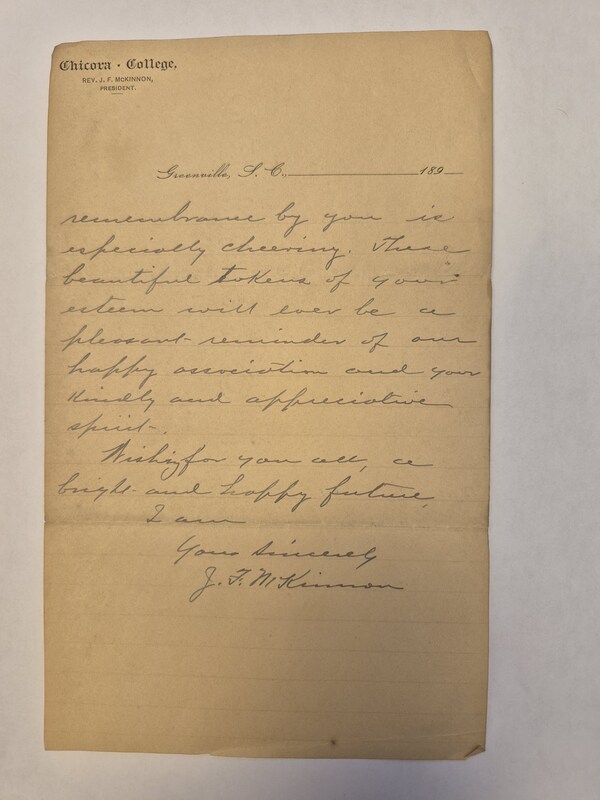 Chicora · College,
REV. J. F. McKINNON,
PRESIDENT.
Greenville, S. C., 189
remembrance by you is
especially cheering. These
beautiful tokens of your
esteem will ever be a
pleasant reminder of our
happy association and your
kindly and appreciative
spirit.
Wishing for you all, a
bright and happy future,
I am
Yours Sincerely
J. F. McKinnon